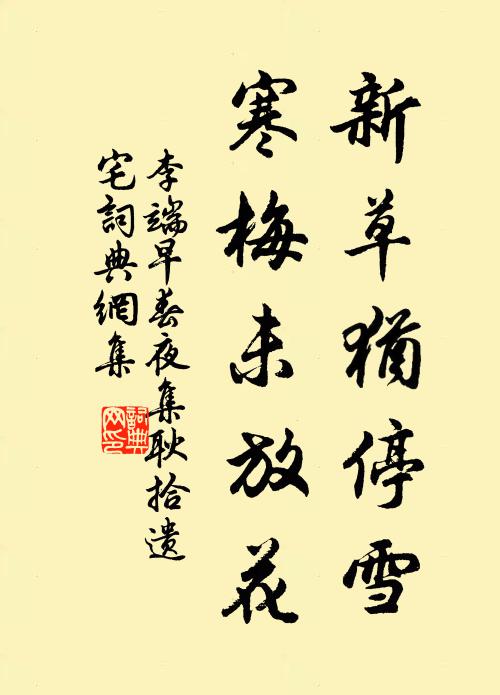 新草猶停雪
寒梅未放花
李端早春夜集耿拾遗
宅詞典網集
詞典
网印